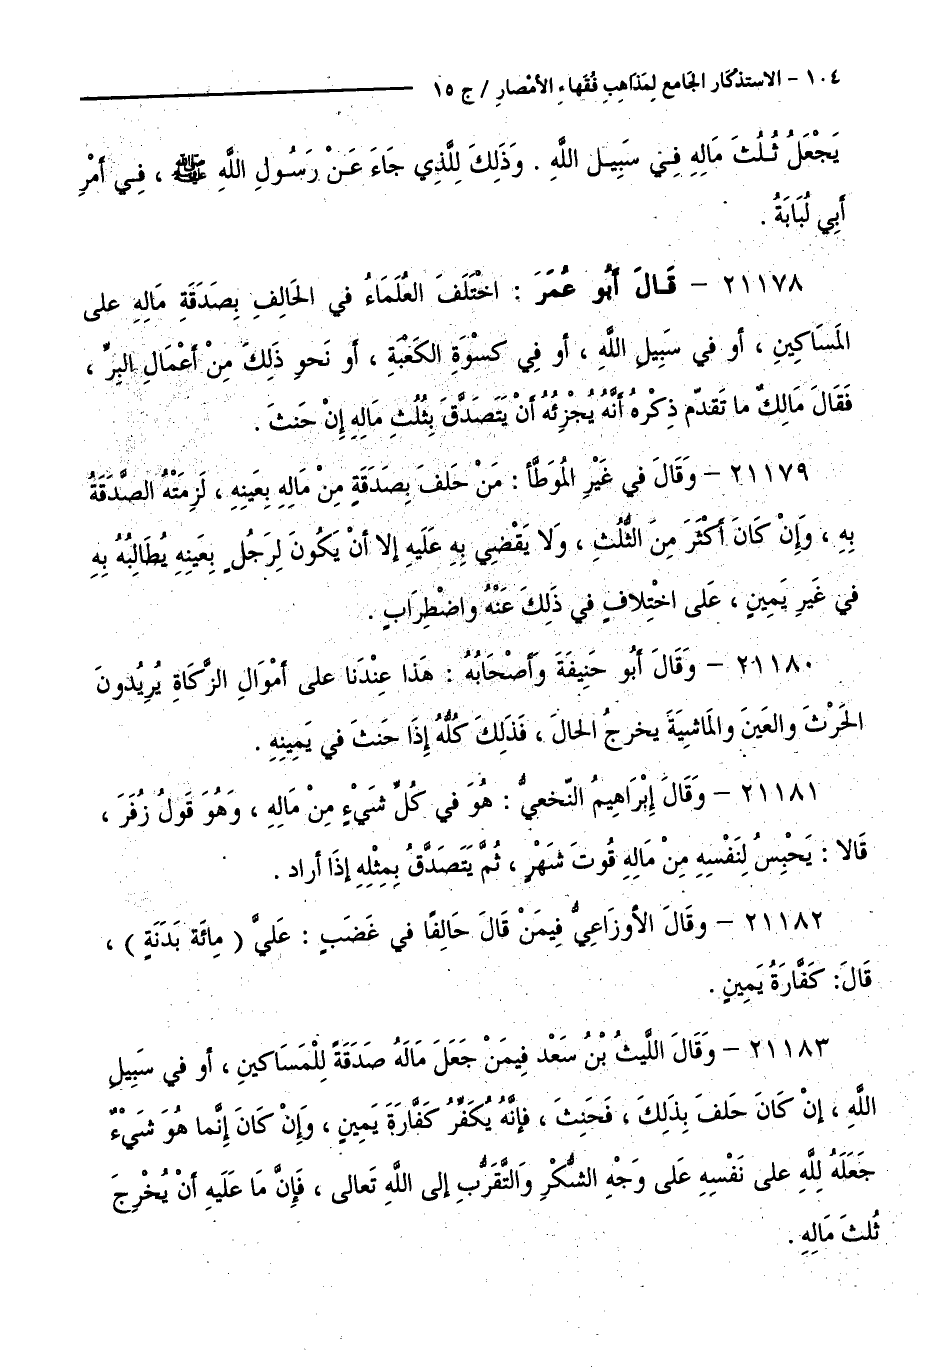 ١٠٤ - الاستذْكَار الجَامع لِمَذاهِبِ فُقَهاءِ الأمْصارِ / ج ١٥
يَجْعَلُ ثُلُثَ مَالِهِ فِي سَبِيلِ اللَّهِ . وَذَلِكَ لِلَّذِي جَاءَ عَنْ رَسُولِ اللَّهِ ﷺ ، فِي أمْرِ
أَبِي لُبَابَةُ .
٢١١٧٨ – قَالَ أَبُو عُمَرَ : اخْتَلَفَ العُلَمَاءُ في الحَالِفِ بِصَدَقَةِ مَالِهِ على
المَسَاكِينِ ، أو في سَبِيلِ اللَّهِ ، أو فِي كسْوَةِ الكَعْبَةِ ، أو نَحوِ ذَلِكَ مِنْ أعْمَالِ البِرِّ ،
فَقَالَ مَالِكٌ ما تَقدّم ذِكْرهُ أنَّهُ يُجْزِئُهُ أنْ يَتَصَدَّقَ بِثُلُثِ مَالِهِ إنْ حَنثَ .
٢١١٧٩ – وَقَالَ في غَيْرِ المُوَطَّأ : مَنْ حَلفَ بِصَدَقَةٍ مِنْ مَالِهِ بِعَينِهِ ، لَزِمَتْهُ الصَّدَقَةُ
بِهِ ، وَإنْ كَانَ أكْثَرَ مِنَ الثُّلُثِ ، ولَا يَقْضِي بِهِ عَلَيهِ إلا أنْ يَكُونَ لِرَجُلٍ بِعَينِهِ يُطَالِبُهُ بِهِ
في غَيرِ يَمِينٍ ، عَلى اخْتِلافٍ في ذَلِكَ عَنْهُ واضْطِرَابٍ .
٢١١٨٠ – وَقَالَ أَبُو حَنِيفَةَ وَأصْحَابُهُ : هَذا عِنْدَنا على أمْوَالِ الزَّكَاةِ يُرِيدُونَ
الحَرْثَ والعَينَ والمَاشِيَةَ يخرجُ الحالَ ، فَذلِكَ كُلُّهُ إذَا حَنثَ في يَمِينِهِ .
٢١١٨١ – وَقَالَ إِبْرَاهِيمُ النّخعيُّ : هُوَ في كُلِّ شَيْءٍ مِنْ مَالِهِ ، وَهُوَ قَولُ زُفَرَ ،
قَالا : يَحْبِسُ لِنَفْسِهِ مِنْ مَالِهِ قُوتَ شَهْرٍ ، ثُمَّ يَتَصَدَّقُ بِمِثْلِهِ إذَا أراد .
٢١١٨٢ – وقَالَ الأوزَاعِيُّ فِيمَنْ قَالَ حَالِفًا في غَضَبٍ : عَليَّ ( مِائَة بَدَنَةٍ ) ،
قَالَ: كَفَّارَةُ يَمِينٍ .
٢١١٨٣ – وَقَالَ اللَّيثُ بْنُ سَعْد فِيمَنْ جَعَلَ مَالَهُ صَدَقَةً لِلْمَسَاكينِ ، أو في سَبِيلِ
اللَّهِ ، إنْ كَانَ حَلفَ بِذَلِكَ ، فَحَنِثَ ، فإنَّهُ يُكَفِّرُ كَفَّارَةَ يَمِينٍ ، وَإنْ كَانَ إنَّما هُوَ شَيْءٌ
جَعَلَهُ لِلَّهِ على نَفْسِهِ عَلى وَجْهِ الشُّكْرِ وَالتَّقَرُّبِ إلى اللَّهِ تَعالى ، فَإنَّ مَا عَلَيهِ أنْ يُخْرِجَ
ثُلثَ مَالِهِ .